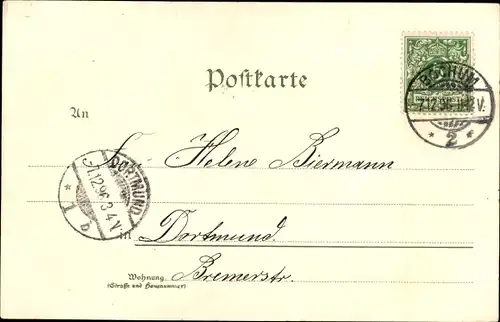 Postkarte
BOCHUM
7.12.96. 11-12 V.
* 2 *
An
Frau Helene Biermann
DORTMUND
7.12.96. 3-4 N.
* 1 D
in Dortmund.
Wohnung Bremerstr.
(Straße und Hausnummer)